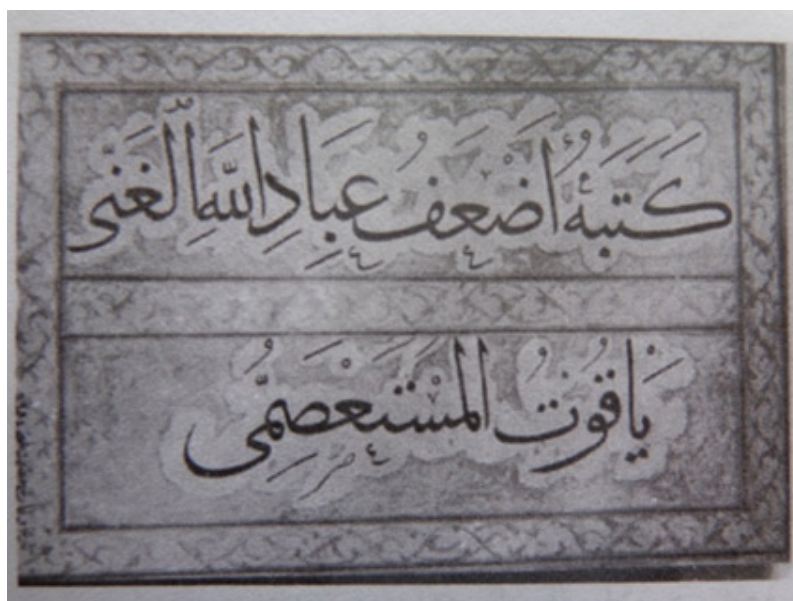 كَتَبَهُ أَضْعَفُ عِبَادِ اللّٰهِ الْغَنِيِّ
يَاقُوتُ الْمُسْتَعْصِمِيُّ